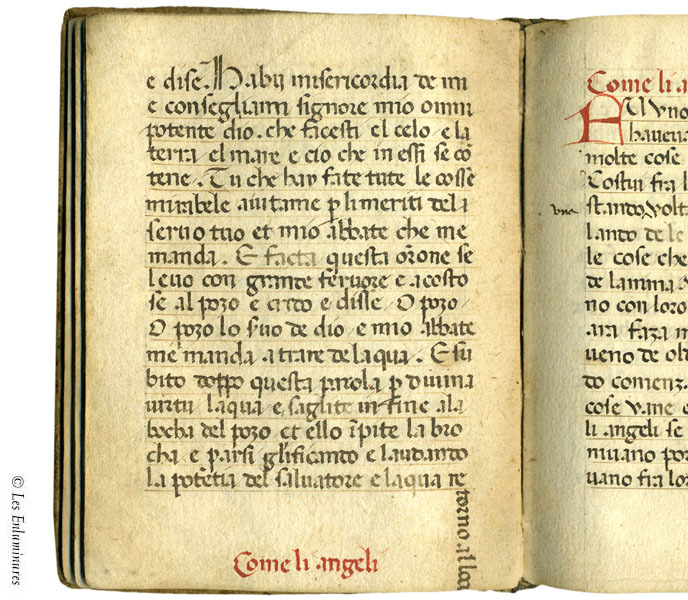 e dise. Habii misericordia de mi
e consegliami signore mio omni
potente dio. che facesti el celo e la
terra el mare e cio che in essi se cõ
tene. Tu che hay fate tute le cosse
mirabele aiutame p li meriti de la
seruo tuo et mio abbate che me
manda. E facta questa orõne se
leuo con grande feruore e acosto
se al pozo e crido e disse O pozo
O pozo lo s'uo de dio e mio abbate
me manda a trare de laqua. E su
bito doppo questa parola p diuina
uirtu laqua e saglite in fine ala
bocha del pozo et ello ĩpite la bro
cha e parsi glificando e laudando
la potẽtia del saluatore e laqua re
torno al loco
Come li angeli
Come li a
uno
haueua
molte cose
Costui fra l
stando volt
una
lando de le
le cose che
de lamma
no con loro
ara faza m
ueno de ol
do comenz
cose vane e
li angeli se
niuano por
uano fra lor
© Les Enluminures